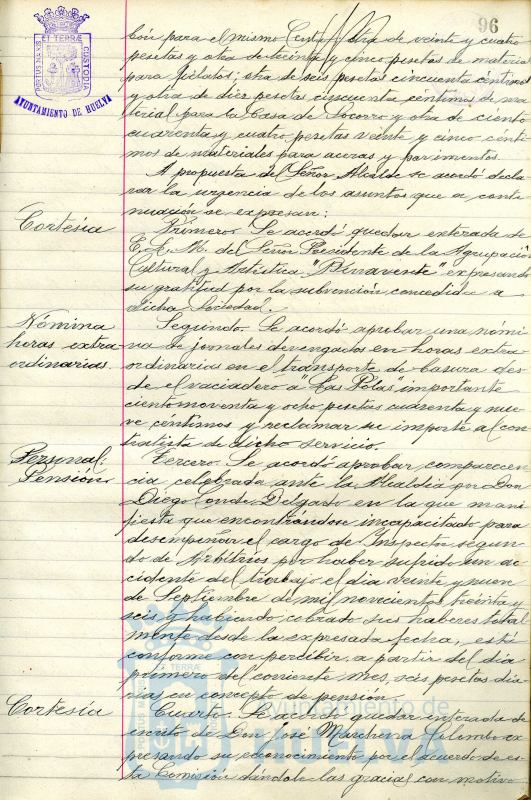 96
PORTUS MARIS ET TERRÆ CUSTODIA
AYUNTAMIENTO DE HUELVA
bón para el mismo Centro; otra de veinte y cuatro
pesetas y otra de treinta y cinco pesetas de material
para jielatos; otra de seis pesetas cincuenta céntimos
y otra de diez pesetas cincuenta céntimos de ma-
terial para la Casa de Socorro y otra de ciento
cuarenta y cuatro pesetas veinte y cinco cénti
mos de materiales para aceras y pavimentos.
A propuesta del Señor Alcalde se acordó decla
rar la urgencia de los asuntos que a conti
nuación se expresan:
Cortesía
Primero. Se acordó quedar enterada de
B. L. M. del Señor Presidente de la Agrupación
Cultural y Artística "Benavente" expresando
su gratitud por la subvención concedida a
dicha Sociedad.
Nómina
horas extra
ordinarias.
Segundo. Se acordó aprobar una nómi
na de jornales devengados en horas extra
ordinarias en el transporte de basura des
de el vaciadero a "Las Polas" importante
ciento noventa y ocho pesetas cuarenta y nue
ve céntimos y reclamar su importe al con
tratista de dicho servicio.
Personal:
Pensión
Tercero. Se acordó aprobar comparecen
cia celebrada ante la Alcaldía por Don
Diego Conde Delgado en la que mani
fiesta que encontrándose incapacitado para
desempeñar el cargo de Inspector segun
do de Arbitrios por haber sufrido un ac
cidente del trabajo el dia veinte y nueve
de Septiembre de mil novecientos treinta y
seis y habiendo cobrado sus haberes total
mente desde la expresada fecha, está
conforme con percibir, a partir del dia
primero del corriente mes, seis pesetas dia
rias en concepto de pensión.
Cortesía
Cuarto. Se acordó quedar enterada de
escrito de Don José Marchena Colombo ex
presando su reconocimiento por el acuerdo de es
ta Comisión dándole las gracias con motivo
Ayuntamiento de
HUELVA